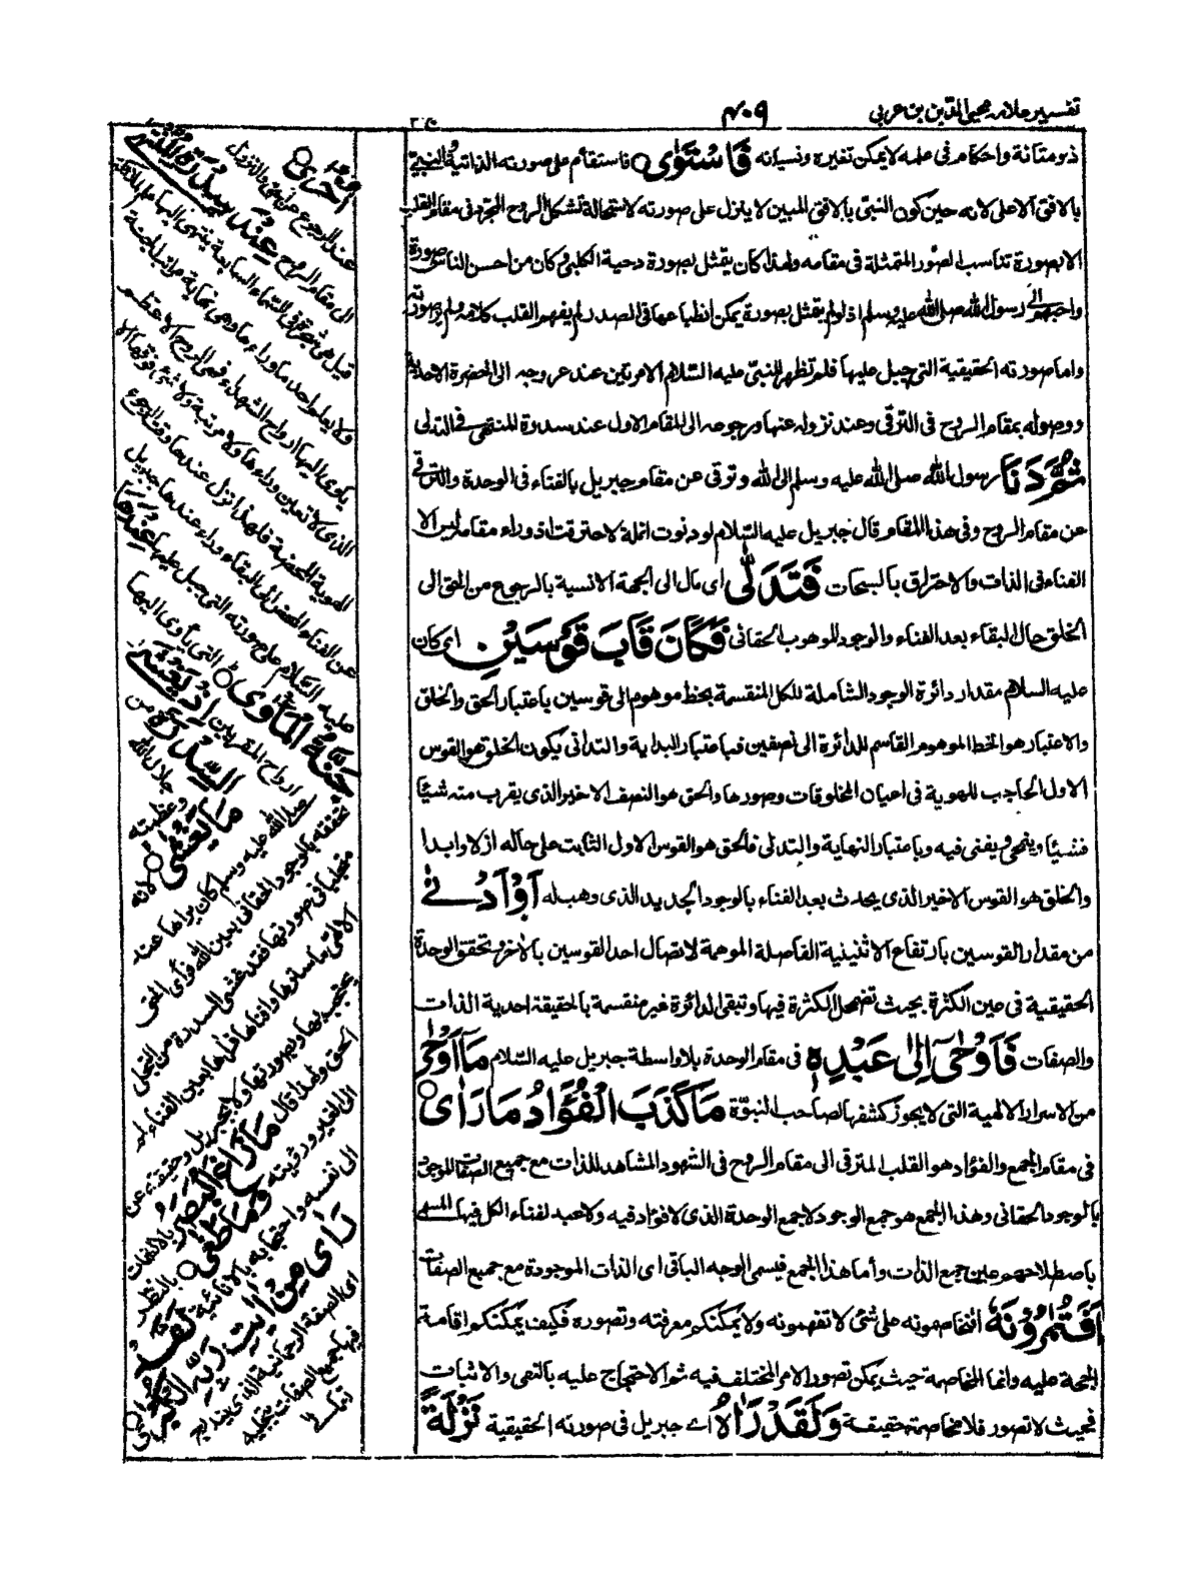 تفسير علامه محيي الدين بن عربي
٤٠٩
ذو متانة واحكام في علمه لا يمكن تغيره ونسيانه فَاسْتَوٰى فاستقام على صورته الذاتية والنبي
بالافق الاعلى لانه حين كون النبي بالافق المبين لا ينزل على صورته لاستحالة تشكل الروح المجرد في مقام القلب
الا بصورة تناسب الصور المتمثلة في مقامه ولهذا كان يتمثل بصورة دحية الكلبي وكان من احسن الناس صورة
واحبهم الى رسول الله صلى الله عليه وسلم اذ لو لم يتمثل بصورة يمكن انطباعها في الصدر لم يفهم القلب كلامه ولم ير صورته
واما صورته الحقيقية التي جبل عليها فلم تظهر للنبي عليه السلام الا مرتين عند عروجه الى الحضرة الاحدية
ووصوله بمقام الروح في الترقي وعند نزوله عنها ورجوعه الى المقام الاول عند سدرة المنتهى في التدلى
ثُمَّ دَنَا رسول الله صلى الله عليه وسلم الى الله وترقى عن مقام جبريل بالفناء في الوحدة والترقي
عن مقام الروح وفي هذا المقام قال جبريل عليه السلام لو دنوت انملة لاحترقت اذ وراء مقامه ليس الا
الفناء في الذات والاحتراق بالسبحات فَتَدَلّٰى اى مال الى الجهة الانسية بالرجوع من الحق الى
الخلق حال البقاء بعد الفناء والوجود الموهوب الحقانى فَكَانَ قَابَ قَوْسَيْنِ اى كان
عليه السلام مقدار دائرة الوجود الشاملة للكل المنقسمة بخط موهوم الى قوسين باعتبار الحق والخلق
والاعتبار هو الخط الموهوم القاسم للدائرة الى نصفين فباعتبار البداية والتدانى يكون الخلق هو القوس
الاول الحاجب للهوية في اعيان المخلوقات وصورها والحق هو النصف الاخير الذى يقرب منه شيئا
فشيئا وينمحى ويفنى فيه وباعتبار النهاية والتدلى فالحق هو القوس الاول الثابت على حاله ازلا وابدا
والخلق هو القوس الاخير الذى يحدث بعد الفناء بالوجود الجديد الذى وهب له اَوْ اَدْنٰى
من مقدار القوسين بارتفاع الاثنينية الفاصلة الموهمة لاتصال احد القوسين بالاخر وتحقق الوحدة
الحقيقية في عين الكثرة بحيث تضمحل الكثرة فيها وتبقى الدائرة غير منقسمة بالحقيقة احدية الذات
والصفات فَاَوْحٰى اِلٰى عَبْدِهٖ في مقام الوحدة بلا واسطة جبريل عليه السلام مَا اَوْحٰى
من الاسرار الالهية التى لا يجوز كشفها لصاحب النبوة مَا كَذَبَ الْفُؤَادُ مَا رَاٰى
في مقام الجمع والفؤاد هو القلب المترقى الى مقام الروح في الشهود المشاهد للذات مع جميع الصفات الموجود
بالوجود الحقانى وهذا الجمع هو جمع الوجود لا جمع الوحدة الذى لا فؤاد فيه ولا عبد لفناء الكل فيها المسمى
باصطلاحهم عين جمع الذات وأما هذا الجمع فيسمى الوجه الباقى اى الذات الموجودة مع جميع الصفات
اَفَتُمٰرُوْنَهٗ أفتخاصمونه على شئ لا تفهمونه ولا يمكنكم معرفته وتصوره فكيف يمكنكم اقامة
الحجة عليه وانما المخاصمة حيث يمكن تصور الامر المختلف فيه ثم الاحتجاج عليه بالنفى والاثبات
فحيث لا تصور فلا مخاصمة حقيقة وَلَقَدْ رَاٰهُ اے جبريل في صورته الحقيقية نَزْلَةً
اُخْرٰى
عند الرجوع عن الحق والنزول
الى مقام الروح عِنْدَ سِدْرَةِ الْمُنْتَهٰى
قيل هى شجرة في السماء السابعة ينتهى اليها علم الملائكة
ولا يعلم احد ما وراءها وهى نهاية مراتب الجنة
يأوى اليها ارواح الشهداء فهى الروح الاعظم
الذى لا تعين وراءها ولا مرتبة ولا شئ فوقها الا
الهوية المحضة فلهذا نزل عندها وقت الرجوع
عن الفناء المحض الى البقاء وراء عندها جبريل
عليه السلام على صورته التى جبل عليها عِنْدَهَا
جَنَّةُ الْمَاْوٰى التى يأوى اليها
ارواح المقربين اِذْ يَغْشَى
السِّدْرَةَ من جلال الله
وعظمته مَا يَغْشٰى لانه
صلى الله عليه وسلم كان يراها عند
تحققه بالوجود الحقانى بعين الله فرأى الحق
متجليا في صورتها فقد غشى السدرة من التجلى
الالهى ما سترها وافناها فرآها بعين الفناء لم
يحتجب بها وبصورتها ولا بجبريل وحقيقته عن
الحق ولهذا قال مَا زَاغَ الْبَصَرُ بالالتفات
الى الغير ورؤيته وَمَا طَغٰى بالنظر
الى نفسه واحتجابه بالانائية لَقَدْ
رَاٰى مِنْ اٰيٰتِ رَبِّهِ الْكُبْرٰى
اى الصفة الرحمانية الذى يندرج
فيها جميع الصفات بتجليه